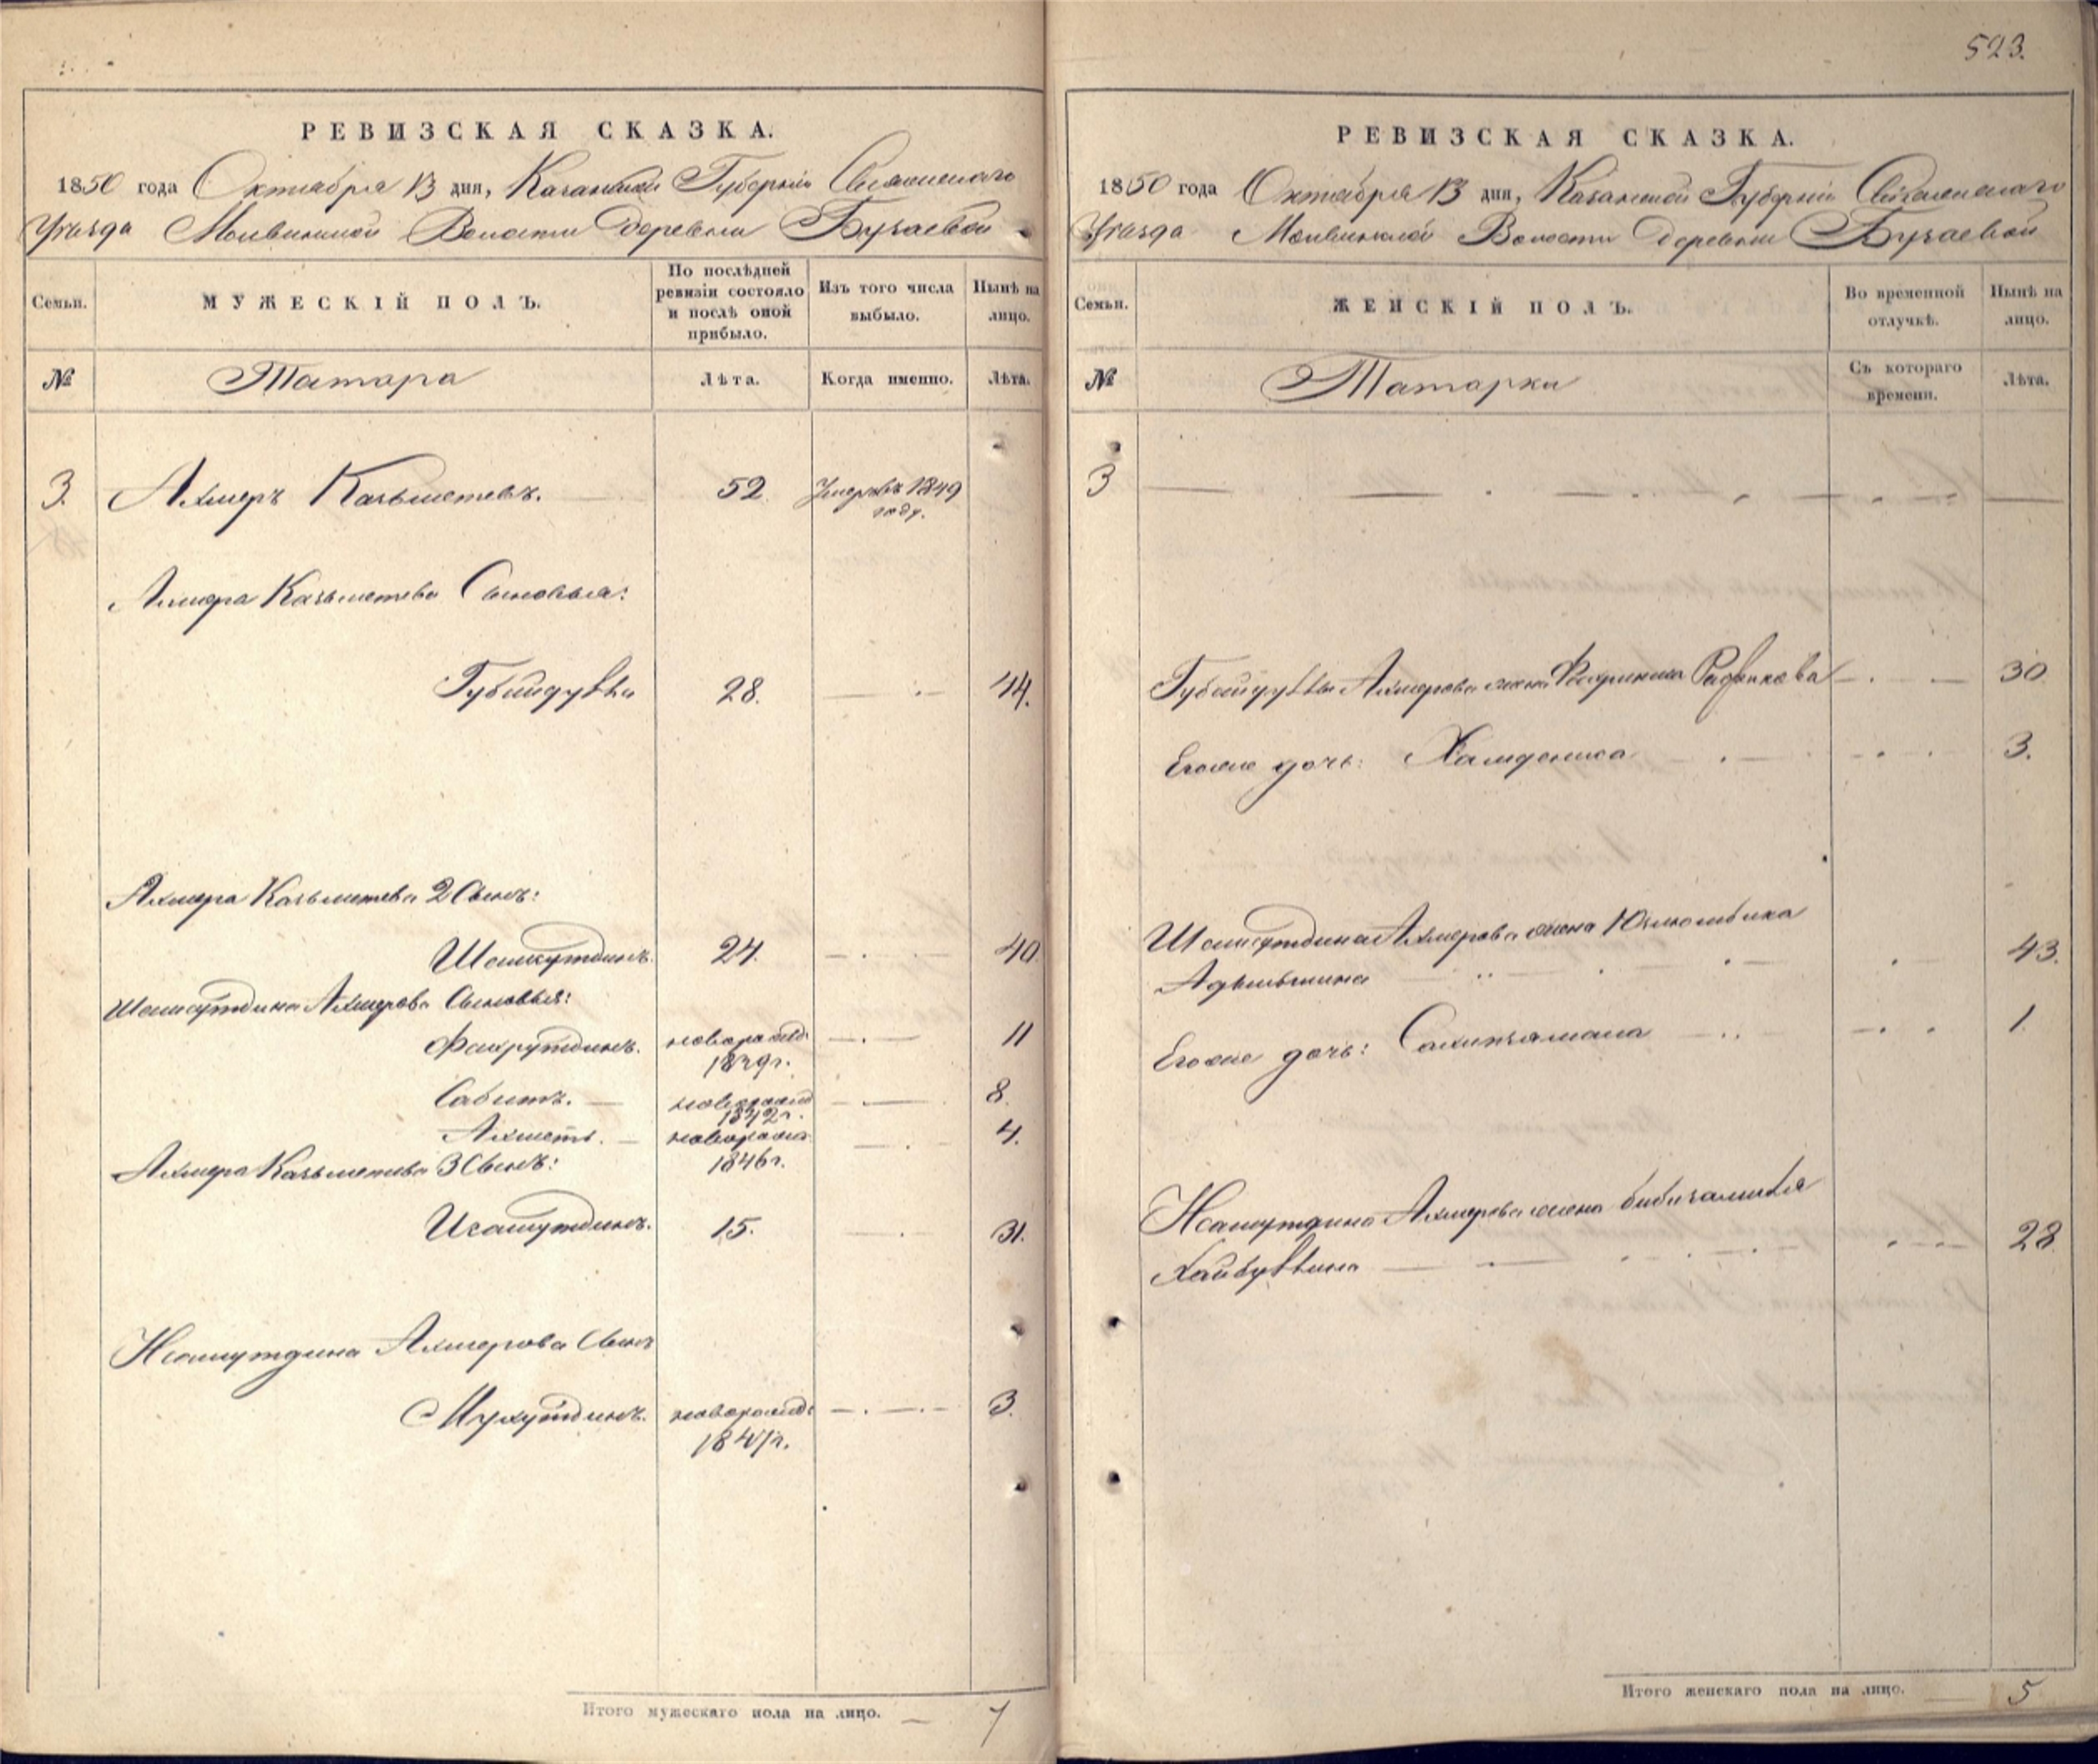 РЕВИЗСКАЯ СКАЗКА.
1850 года Октября 13 дня, Казанской Губерніи Свіяжскаго
Уѣзда Молвинской Волости Деревни Бузаевой
Семьи. МУЖЕСКІЙ ПОЛЪ. По послѣдней ревизіи состояло и послѣ оной прибыло. Изъ того числа выбыло. Нынѣ на лицо.
№ Татара Лѣта. Когда именно. Лѣта.
3. Ахмеръ Казьметевъ. 52 Умеръ въ 1849
году.
Ахмера Казьметева Сыновья:
Губайдулла 28. 44.
Ахмера Казьметева 2 Сынъ:
Шамсутдинъ. 24. 40.
Шамсутдина Ахмерова Сыновья:
Фахрутдинъ. новорожд: 11
1839г.
Сабитъ. новорожд 8.
1842г.
Ахметъ. новорожд. 4.
Ахмера Казьметева 3 Сынъ: 1846г.
Исамутдинъ. 15. 31.
Исамутдина Ахмерова Сынъ
Мухутдинъ. новорожд: 3.
1847г.
Итого мужескаго пола на лицо. 7
523.
РЕВИЗСКАЯ СКАЗКА.
1850 года Октября 13 дня, Казанской Губерніи Свіяжскаго
Уѣзда Молвинской Волости Деревни Бузаевой
Семьи. ЖЕНСКІЙ ПОЛЪ. Во временной отлучкѣ. Нынѣ на лицо.
№ Татарки Съ котораго времени. Лѣта.
3
Губайдуллы Ахмерова жена Рафикова 30
Егоже дочь: 3.
Шамсутдина Ахмерова жена Юзлюмбика
43.
Егоже дочь: 1.
Исамутдина Ахмерова жена бибигалиля
Хайбуллина 28.
Итого женскаго пола на лицо. 5